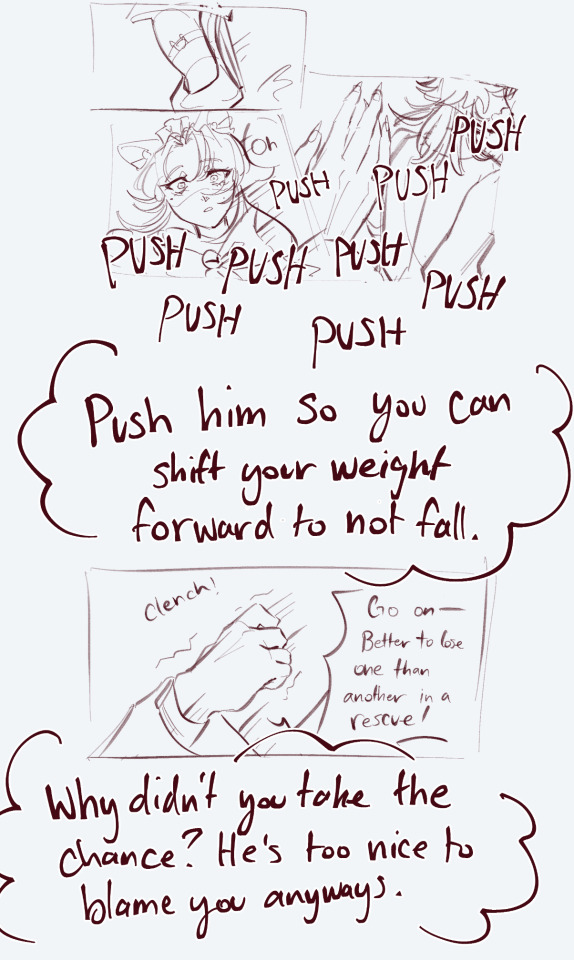 Oh
PUSH
PUSH
PUSH
PUSH
PUSH
PUSH
PUSH
PUSH
PUSH
Push him so you can
shift your weight
forward to not fall.
clench!
Go on—
Better to lose
one than
another in a
rescue!
Why didn't you take the
chance? He's too nice to
blame you anyways.